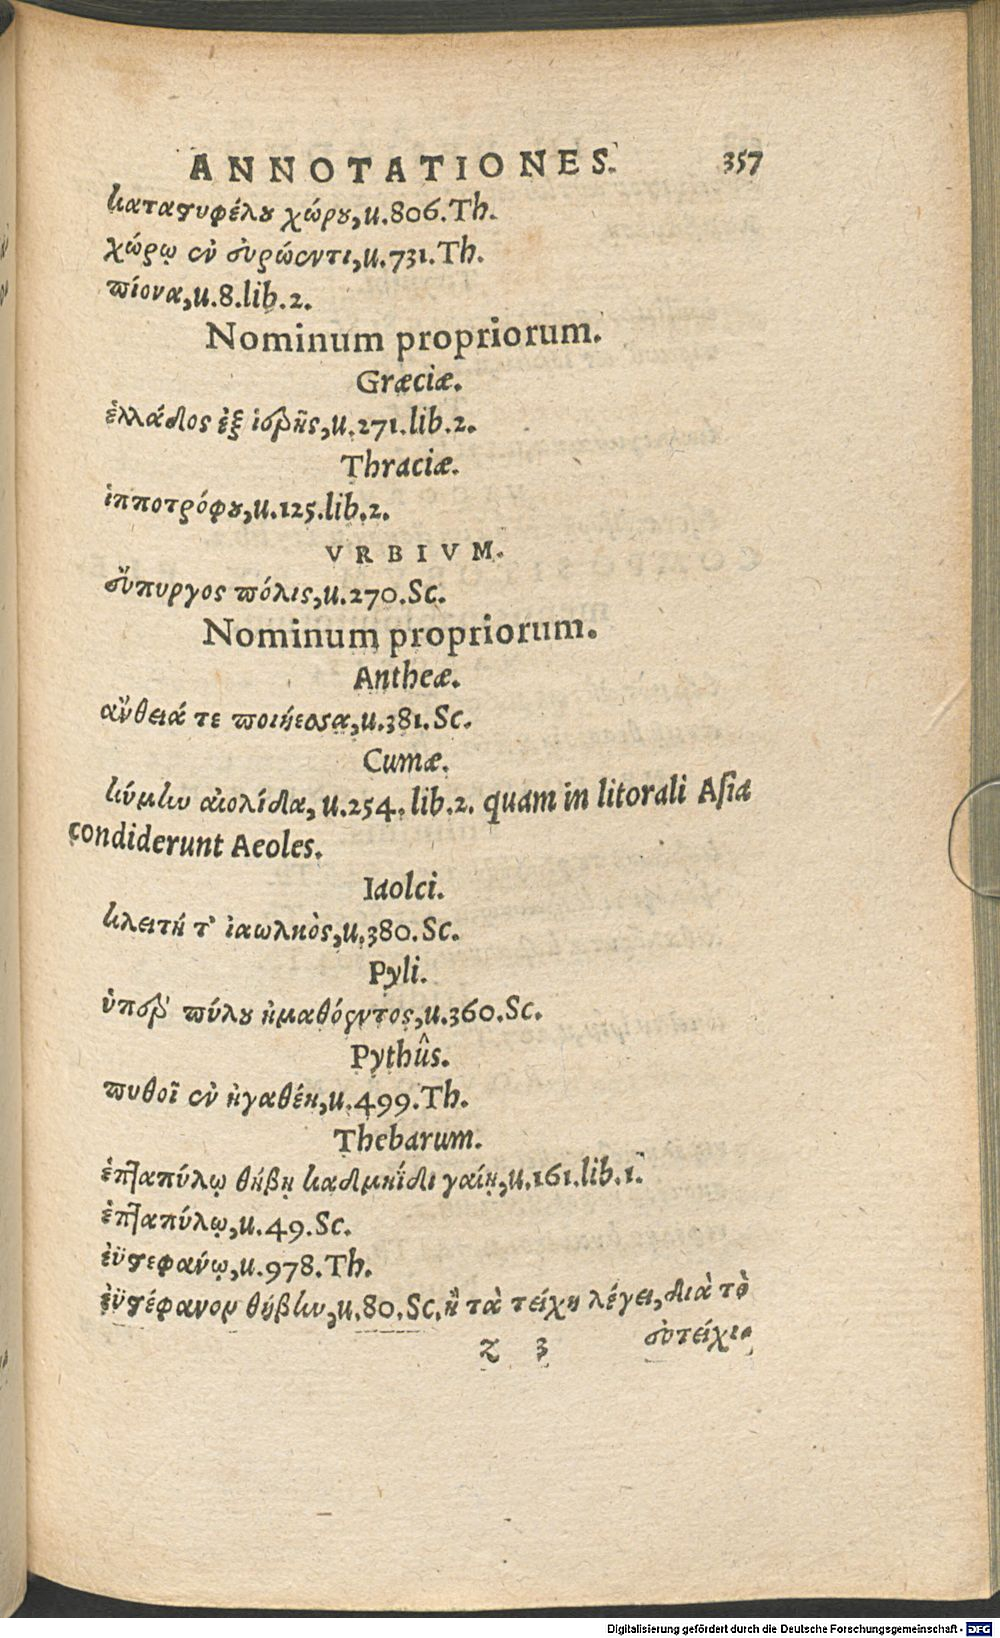 ANNOTATIONES. 357
καταστυφέλου χώρου, u.806.Th.
χώρῳ ἐν εὐρώεντι, u.731.Th.
πίονα, u.8.lib.2.
Nominum propriorum.
Græciæ.
ἑλλάδος ἐξ ἱερῆς, u.271.lib.2.
Thraciæ.
ἱπποτρόφου, u.125.lib.2.
VRBIVM.
εὔπυργος πόλις, u.270.Sc.
Nominum propriorum.
Antheæ.
ἄνθειά τε ποιήεσσα, u.381.Sc.
Cumæ.
κύμην αἰολίδα, u.254.lib.2. quam in litorali Asia
condiderunt Aeoles.
Iaolci.
κλειτή τ' ἰαωλκὸς, u.380.Sc.
Pyli.
ὑπὲρ πύλου ἠμαθόεντος, u.360.Sc.
Pythûs.
πυθοῖ ἐν ἠγαθέη, u.499.Th.
Thebarum.
ἑπταπύλῳ θήβῃ καδμηΐδι γαίῃ, u.161.lib.1.
ἑπταπύλῳ, u.49.Sc.
ἐϋστεφάνῳ, u.978.Th.
ἐϋστέφανον θήβην, u.80.Sc. ἢ τὰ τείχη λέγει, διὰ τὸ
Z 3 εὐτείχι-
Digitalisierung gefördert durch die Deutsche Forschungsgemeinschaft - DFG